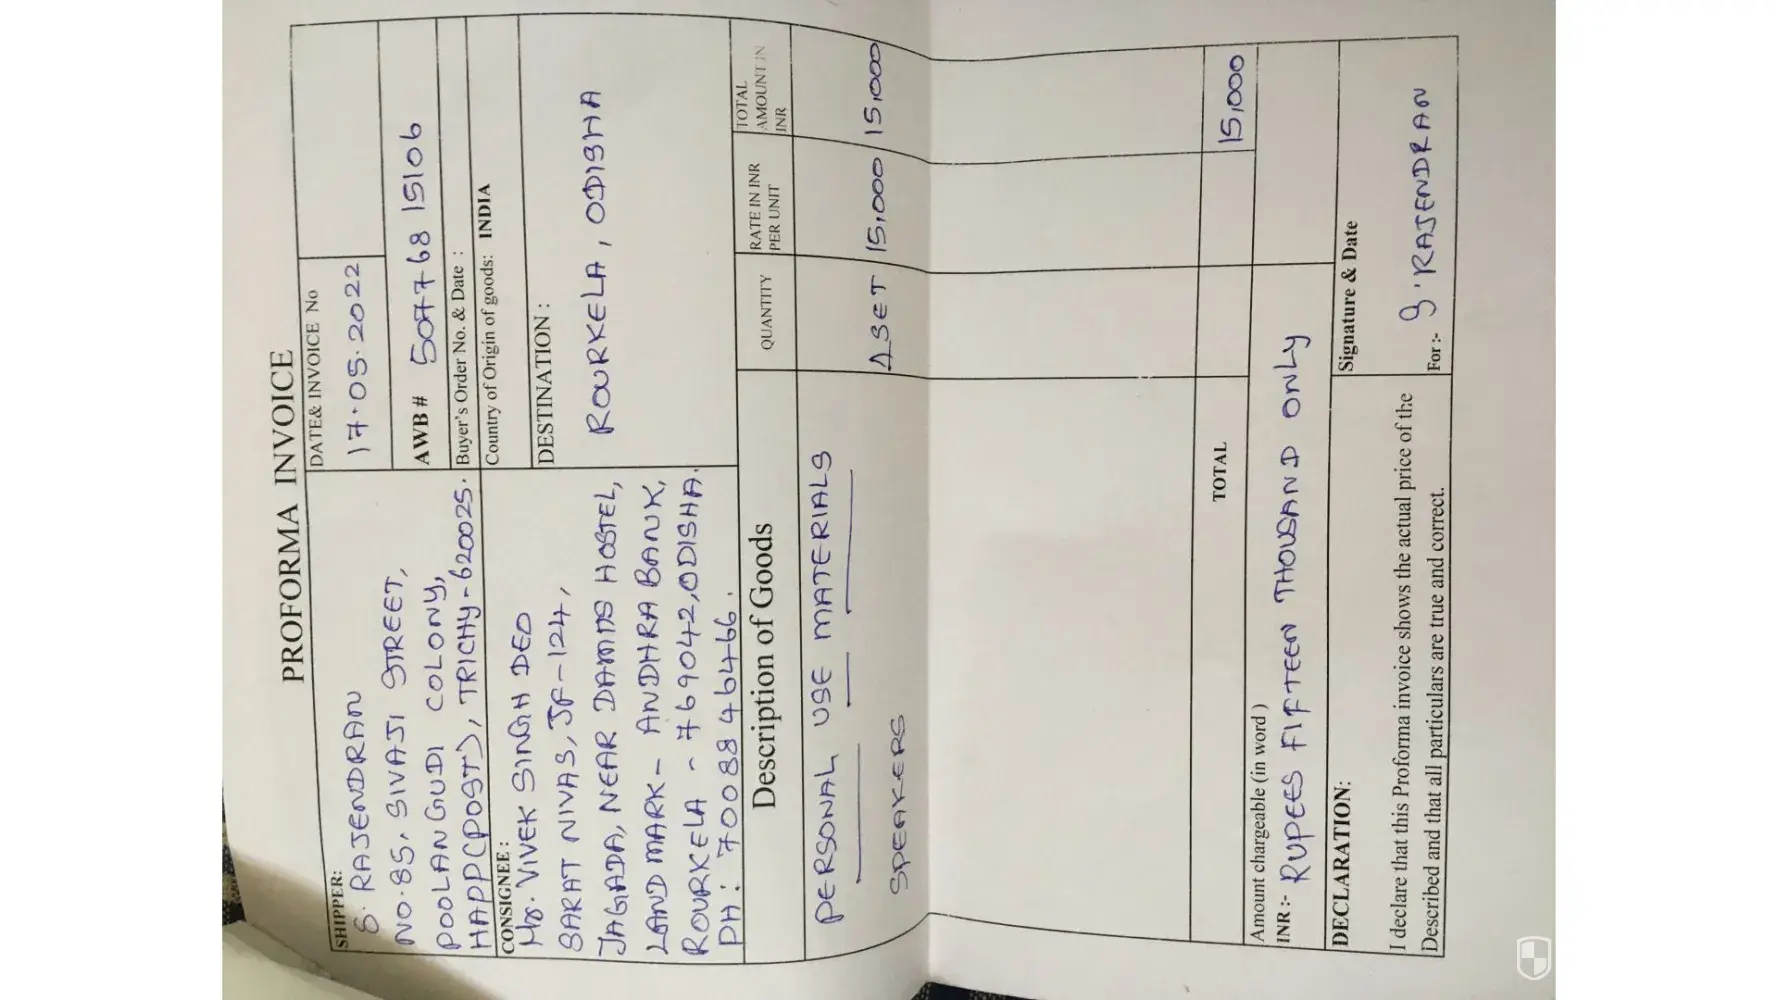 PROFORMA INVOICE
SHIPPER:
S. RAJENDRAN
NO.85, SIVAJI STREET,
POOLANGUDI COLONY,
HAPP(POST), TRICHY-620025.
DATE& INVOICE No
17.05.2022
AWB# 507768 15106
Buyer's Order No. & Date :
Country of Origin of goods: INDIA
CONSIGNEE :
Mr. VIVEK SINGH DEO
SARAT NIVAS, JF-124,
JAGADA, NEAR DAMDS HOSTEL,
LAND MARK - ANDHRA BANK,
ROURKELA - 769042, ODISHA.
PH: 70088 46466.
DESTINATION :
ROURKELA, ODISHA
Description of Goods
QUANTITY
RATE IN INR
PER UNIT
TOTAL
AMOUNT IN
INR
PERSONAL USE MATERIALS
SPEAKERS
1 SET
15,000
15,000
TOTAL
15,000
Amount chargeable (in word )
INR :- RUPEES FIFTEEN THOUSAND ONLY
DECLARATION:
I declare that this Proforma invoice shows the actual price of the
Described and that all particulars are true and correct.
Signature & Date
For :- S. RAJENDRAN